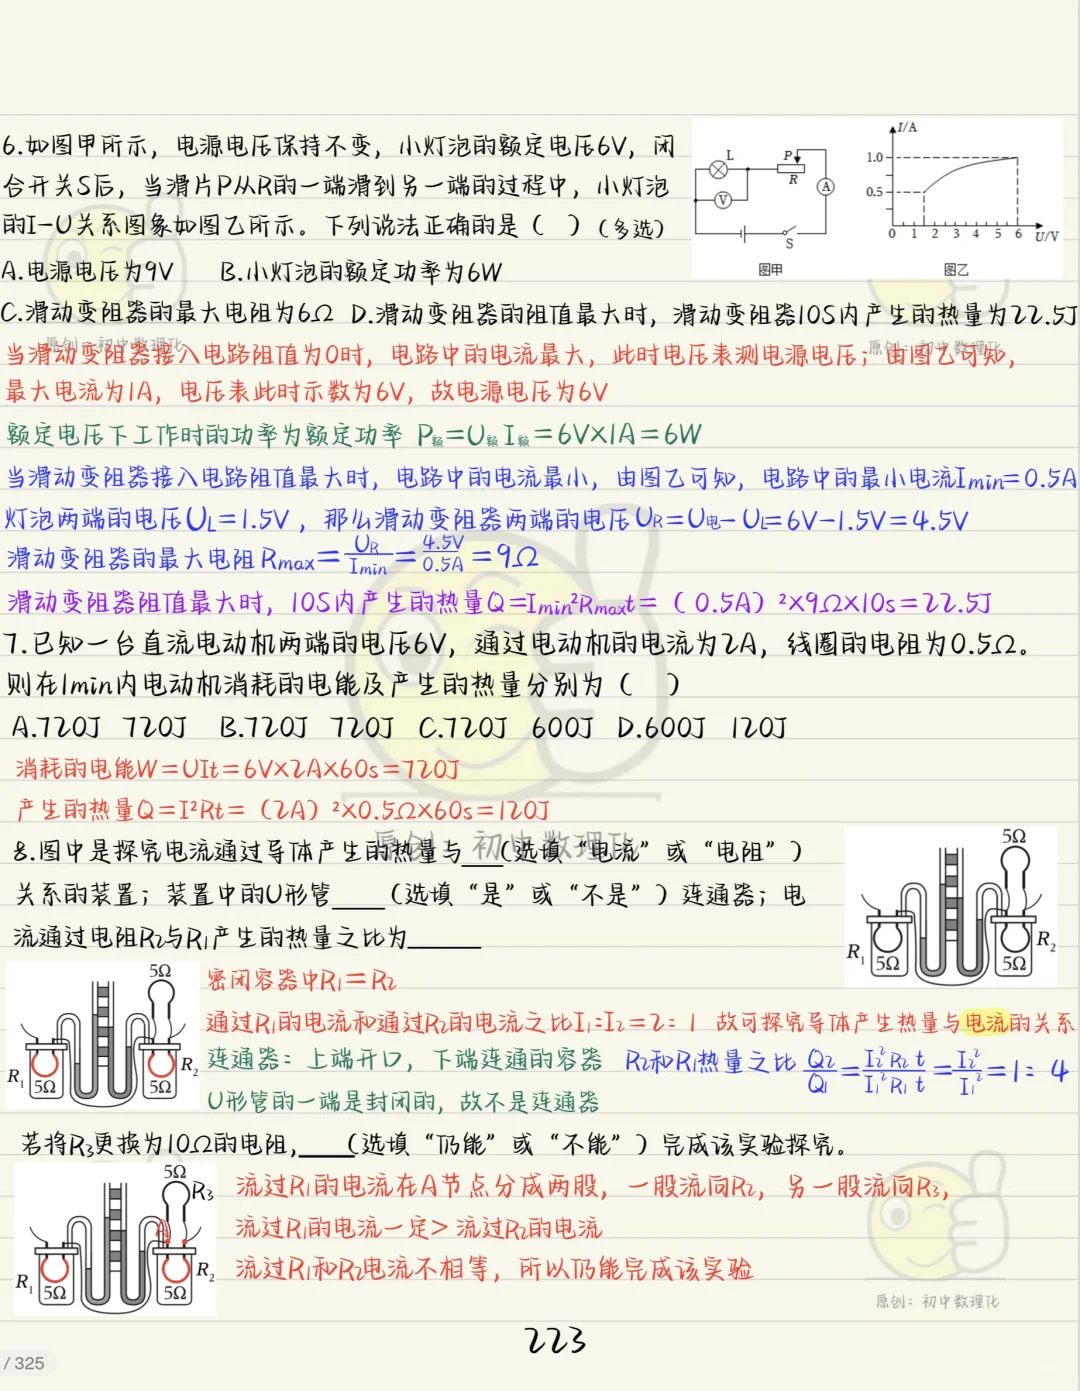 6.如图甲所示，电源电压保持不变，小灯泡的额定电压6V，闭
合开关S后，当滑片P从R的一端滑到另一端的过程中，小灯泡
的I-U关系图象如图乙所示。下列说法正确的是（ ）（多选）
L
P
R
A
V
S
图甲
I/A
1.0
0.5
0 1 2 3 4 5 6 U/V
图乙
A.电源电压为9V B.小灯泡的额定功率为6W
C.滑动变阻器的最大电阻为6Ω D.滑动变阻器的阻值最大时，滑动变阻器10S内产生的热量为22.5J
原创：初中数理化
原创：初中数理化
当滑动变阻器接入电路阻值为0时，电路中的电流最大，此时电压表测电源电压；由图乙可知，
最大电流为1A，电压表此时示数为6V，故电源电压为6V
额定电压下工作时的功率为额定功率 P额=U额I额=6V×1A=6W
当滑动变阻器接入电路阻值最大时，电路中的电流最小，由图乙可知，电路中的最小电流Imin=0.5A
灯泡两端的电压UL=1.5V，那么滑动变阻器两端的电压UR=U电-UL=6V-1.5V=4.5V
滑动变阻器的最大电阻Rmax=UR/Imin=4.5V/0.5A=9Ω
滑动变阻器阻值最大时，10S内产生的热量Q=Imin²Rmaxt=（0.5A）²×9Ω×10s=22.5J
7.已知一台直流电动机两端的电压6V，通过电动机的电流为2A，线圈的电阻为0.5Ω。
则在1min内电动机消耗的电能及产生的热量分别为（ ）
A.720J 720J B.720J 720J C.720J 600J D.600J 120J
消耗的电能W=UIt=6V×2A×60s=720J
产生的热量Q=I²Rt=（2A）²×0.5Ω×60s=120J
原创：初中数理化
8.图中是探究电流通过导体产生的热量与___（选填“电流”或“电阻”）
关系的装置；装置中的U形管____（选填“是”或“不是”）连通器；电
流通过电阻R2与R1产生的热量之比为______
5Ω
R1
5Ω
5Ω
R2
5Ω
R1
5Ω
5Ω
R2
密闭容器中R1=R2
通过R1的电流和通过R2的电流之比I1:I2=2:1 故可探究导体产生热量与电流的关系
连通器：上端开口，下端连通的容器 R2和R1热量之比 Q2/Q1=I2²R2t/I1²R1t=I2²/I1²=1:4
U形管的一端是封闭的，故不是连通器
若将R3更换为10Ω的电阻，____（选填“仍能”或“不能”）完成该实验探究。
5Ω
R3
A
R1
5Ω
5Ω
R2
流过R1的电流在A节点分成两股，一股流向R2，另一股流向R3，
流过R1的电流一定>流过R2的电流
流过R1和R2电流不相等，所以仍能完成该实验
原创：初中数理化
223
/ 325